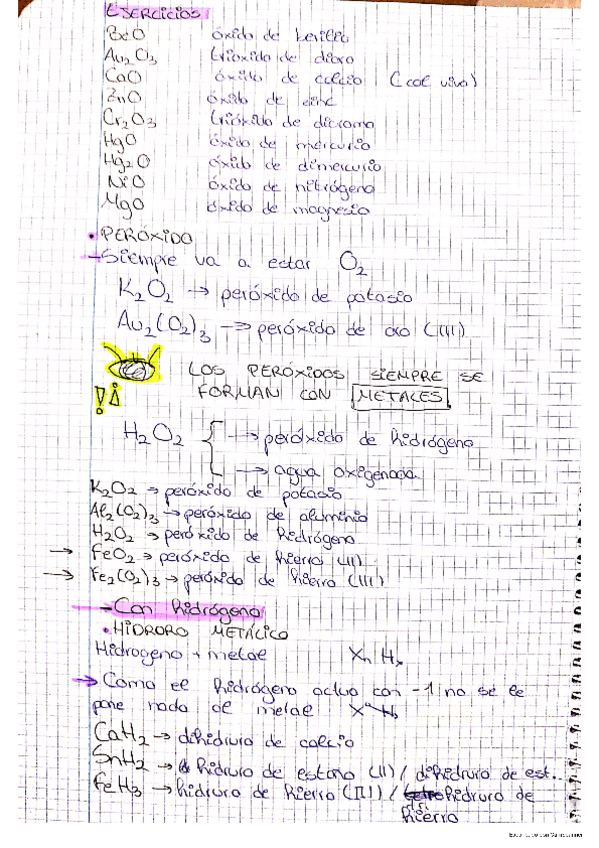 EJERCICIOS
BeO óxido de berilio
Au₂O₃ trióxido de dioro
CaO óxido de calcio (cal viva)
ZnO óxido de zinc
Cr₂O₃ trióxido de dicromo
HgO óxido de mercurio
Hg₂O óxido de dimercurio
NiO óxido de nitrógeno
MgO óxido de magnesio
• PERÓXIDO
→ Siempre va a estar O₂
K₂O₂ → peróxido de potasio
Au₂(O₂)₃ → peróxido de oro (III)
LOS PERÓXIDOS SIEMPRE SE
FORMAN CON METALES
H₂O₂ → peróxido de hidrógeno
→ agua oxigenada
K₂O₂ → peróxido de potasio
Al₂(O₂)₃ → peróxido de aluminio
H₂O₂ → peróxido de hidrógeno
→ FeO₂ → peróxido de hierro (II)
→ Fe₂(O₂)₃ → peróxido de hierro (III)
- Con hidrógeno
• HIDRORO METÁLICO
Hidrogeno + metal Xn Hx
→ Como el hidrógeno actua con -1 no se le
pone nada al metal
CaH₂ → dihidruro de calcio
SnH₂ → hidruro de estano (II) / dihidruro de est..
FeH₃ → hidruro de hierro (III) / trihidruro de
hierro